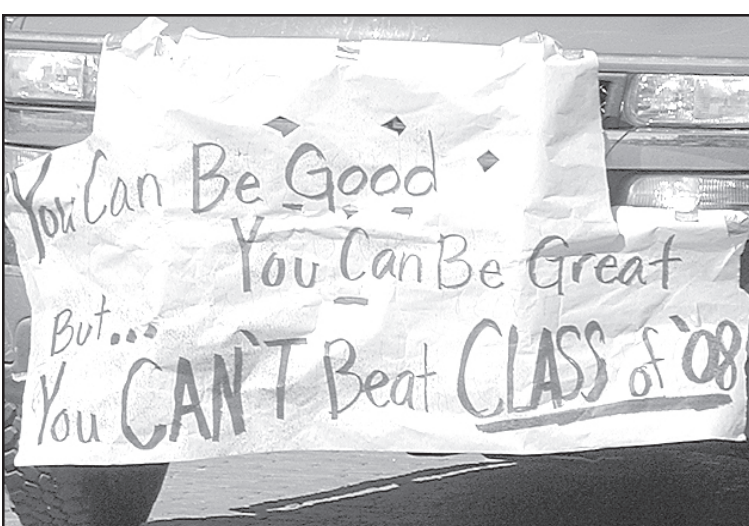 You Can Be Good
You Can Be Great
But...
You CAN'T Beat CLASS of '08